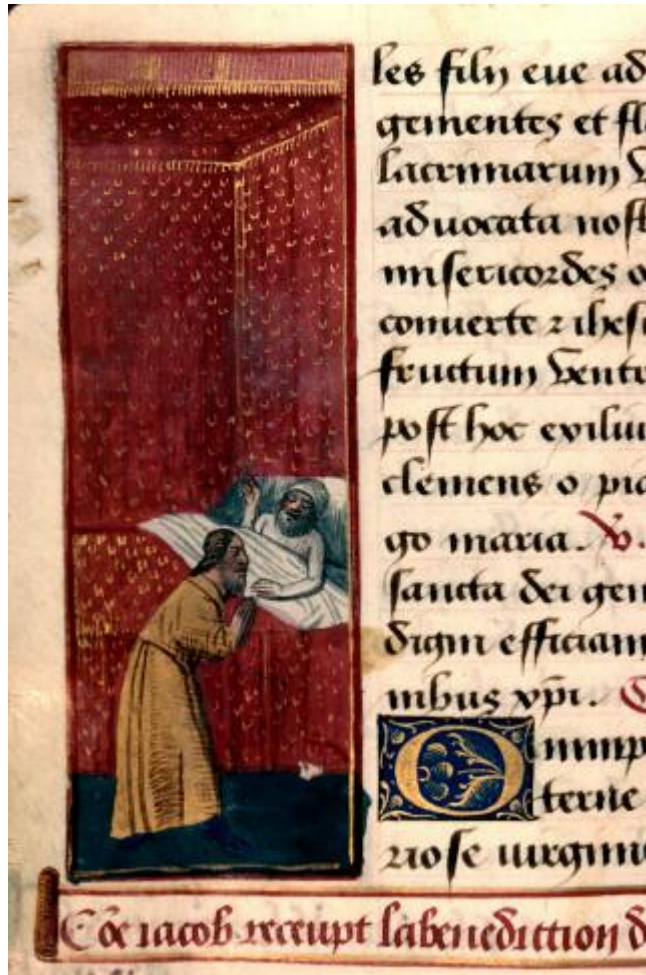 les filij eue ad
gementes et fl
lacrimarum
aduocata nost
misericordes o
conuerte z ihesu
fructum ventr
post hoc exiliu
clemens o pia
go maria. V.
sancta dei gen
digni efficiam
nibus xpi.
Omnip
terne
riose uirgini
Coe iacob receupt la benediction d